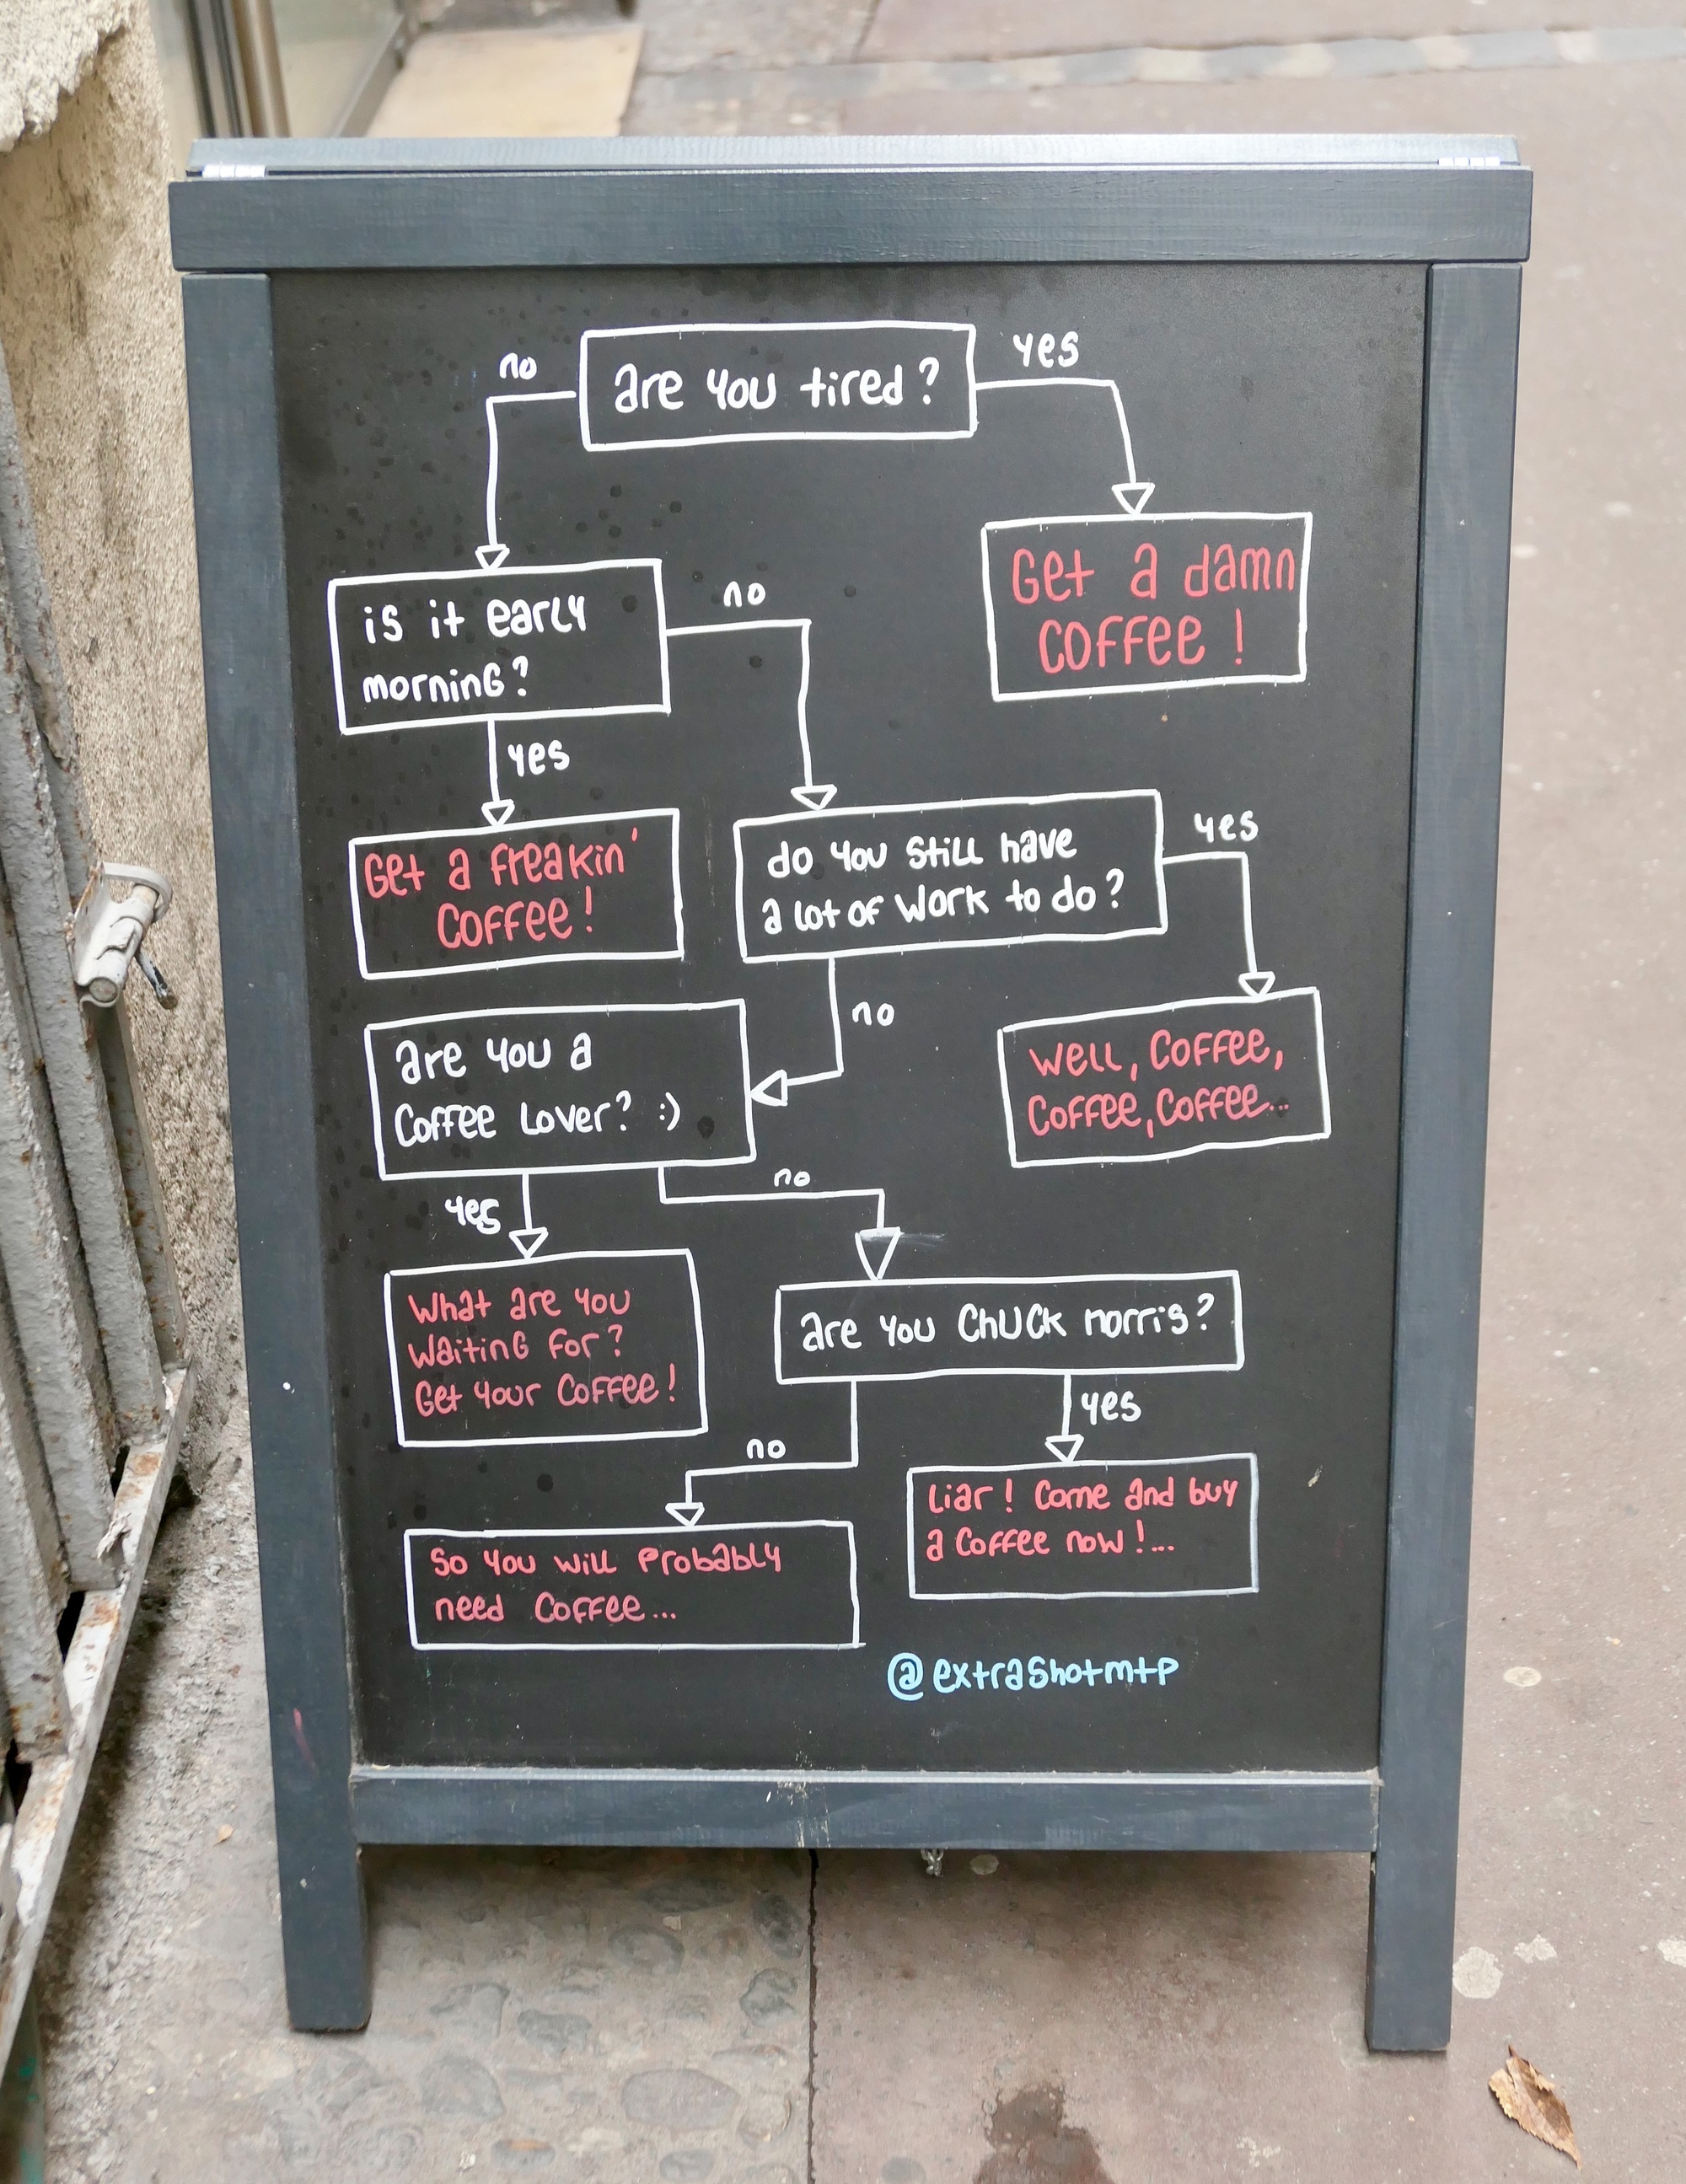 no
are you tired?
yes
is it early
morning?
no
Get a damn
Coffee!
yes
Get a freakin'
Coffee!
do you still have
a lot of work to do?
yes
no
are you a
Coffee Lover? :)
Well, Coffee,
Coffee, Coffee...
yes
no
What are you
waiting for?
Get your Coffee!
are you Chuck norris?
no
yes
So you will probably
need Coffee...
Liar! Come and buy
a Coffee now!...
@extrashotmtp